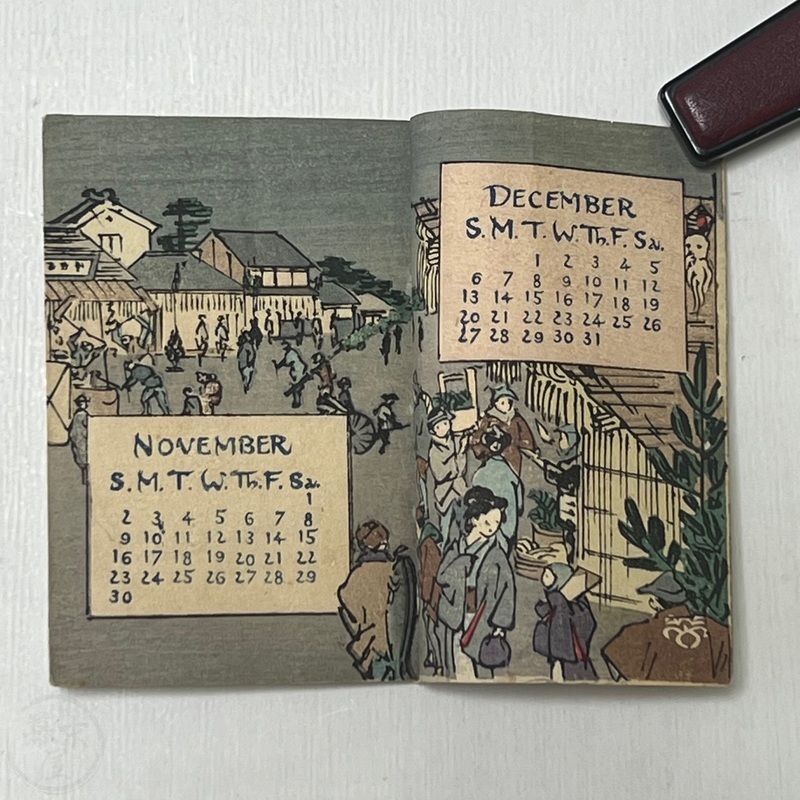 NOVEMBER
S. M. T. W. Th. F. Sa.
1
2 3 4 5 6 7 8
9 10 11 12 13 14 15
16 17 18 19 20 21 22
23 24 25 26 27 28 29
30
DECEMBER
S. M. T. W. Th. F. Sa.
1 2 3 4 5
6 7 8 9 10 11 12
13 14 15 16 17 18 19
20 21 22 23 24 25 26
27 28 29 30 31